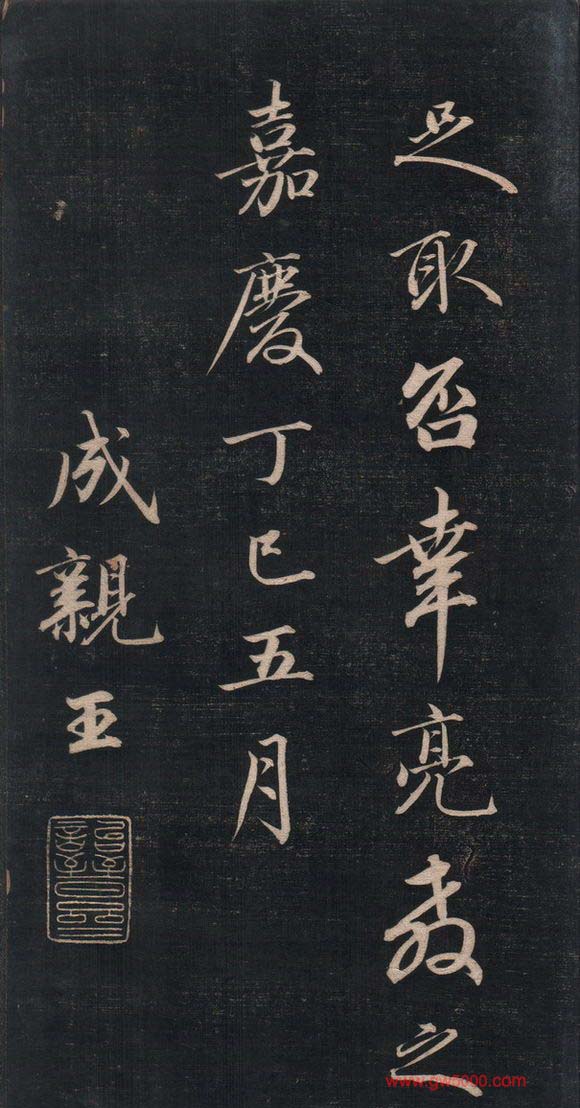 足取否幸亮教之
嘉慶丁巳五月
成親王
www.gw8000.com